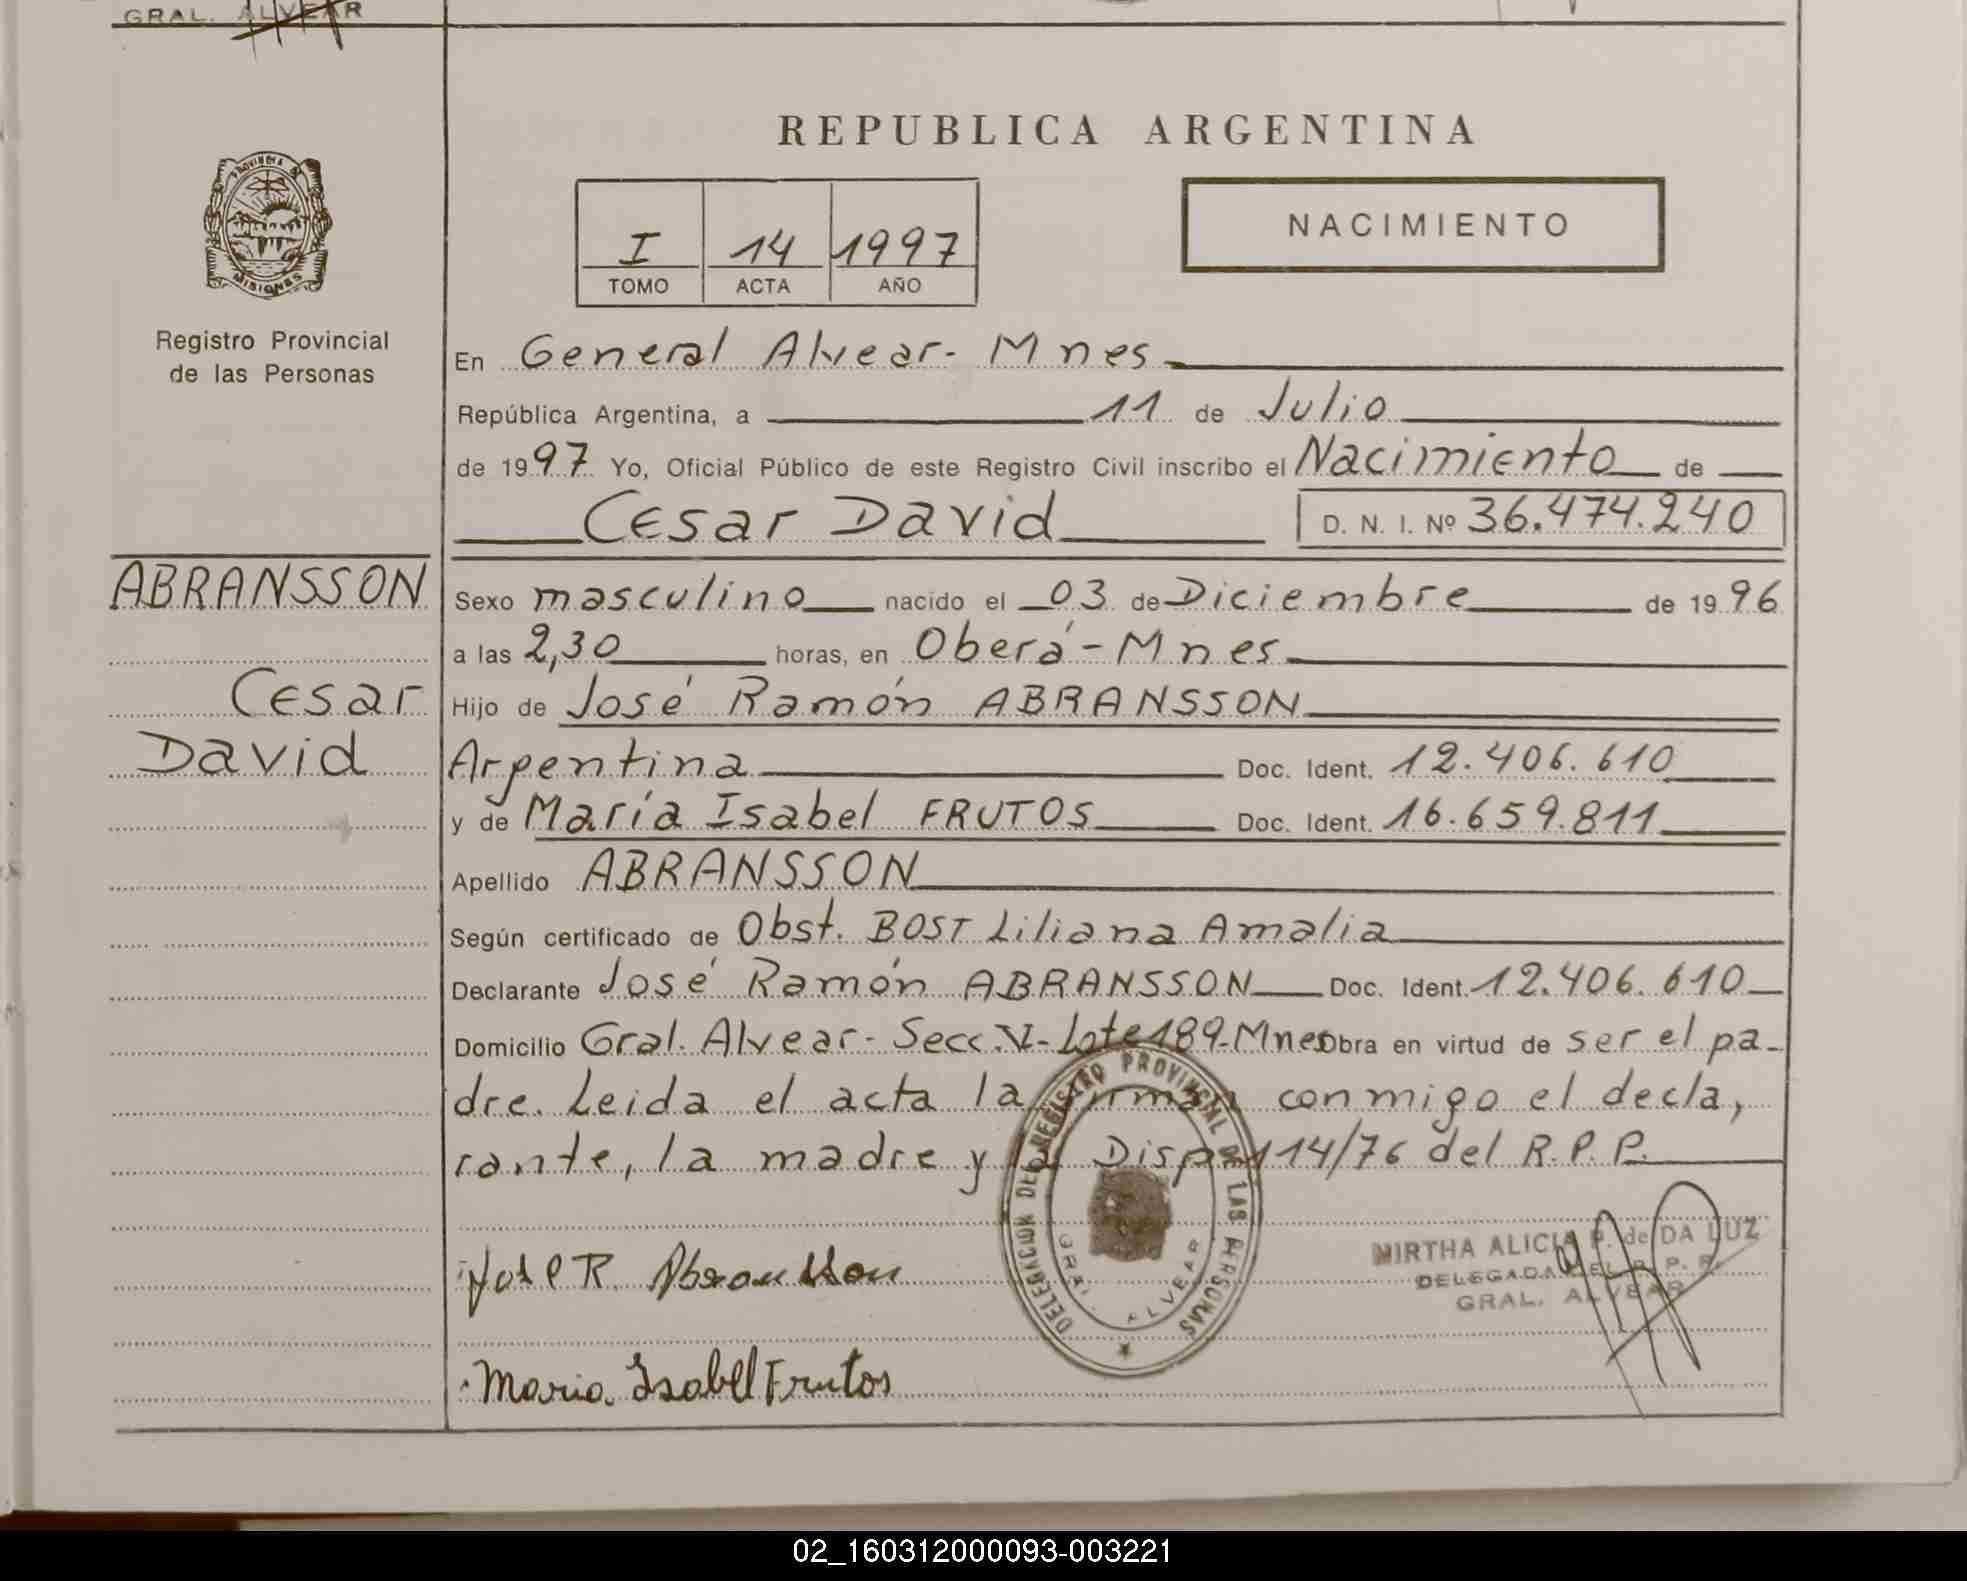 GRAL. ALVEAR
PROVINCIA DE
MISIONES
Registro Provincial
de las Personas
ABRANSSON
Cesar
David
REPUBLICA ARGENTINA
I 14 1997
TOMO ACTA AÑO
NACIMIENTO
En General Alvear - Mnes
República Argentina, a 11 de Julio
de 1997 Yo, Oficial Público de este Registro Civil inscribo el Nacimiento de
Cesar David D. N. I. Nº 36.474.240
Sexo masculino nacido el 03 de Diciembre de 1996
a las 2,30 horas, en Oberá - Mnes
Hijo de José Ramón ABRANSSON
Argentina Doc. Ident. 12.406.610
y de María Isabel FRUTOS Doc. Ident. 16.659.811
Apellido ABRANSSON
Según certificado de Obst. BOST Liliana Amalia
Declarante José Ramón ABRANSSON Doc. Ident. 12.406.610
Domicilio Gral. Alvear - Secc. V - Lote 189 - Mnes Obra en virtud de ser el pa-
dre. Leida el acta la firman conmigo el decla,
rante, la madre y la Disp. 114/76 del R.P.P.
DELEGACION DEL REGISTRO PROVINCIAL DE LAS PERSONAS
GRAL. ALVEAR
José R. Abransson
MIRTHA ALICIA P. de DA LUZ
DELEGADA DEL R. P. P.
GRAL. ALVEAR
Maria Isabel Frutos
02_160312000093-003221